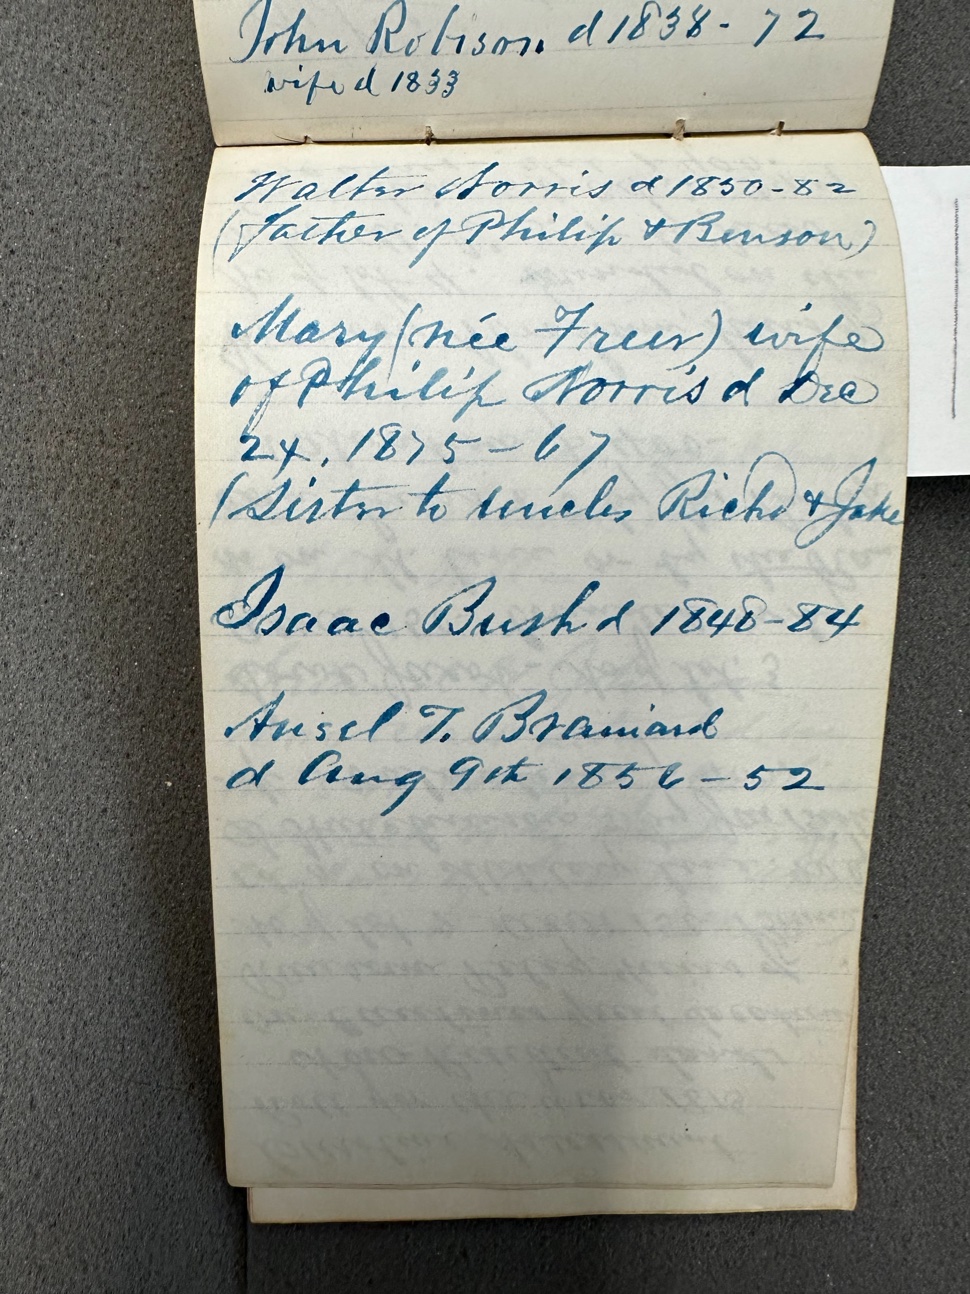 John Robison d 1838 - 72
wife d 1833
Walter Norris d 1850 - 82
(father of Philip & Benson)
Mary (née Freer) wife
of Philip Norris d Dec
24, 1875 - 67
(Sister to uncles Richd & Jake
Isaac Bush d 1848 - 84
Ansel T. Brainard
d Aug 9th 1856 - 52